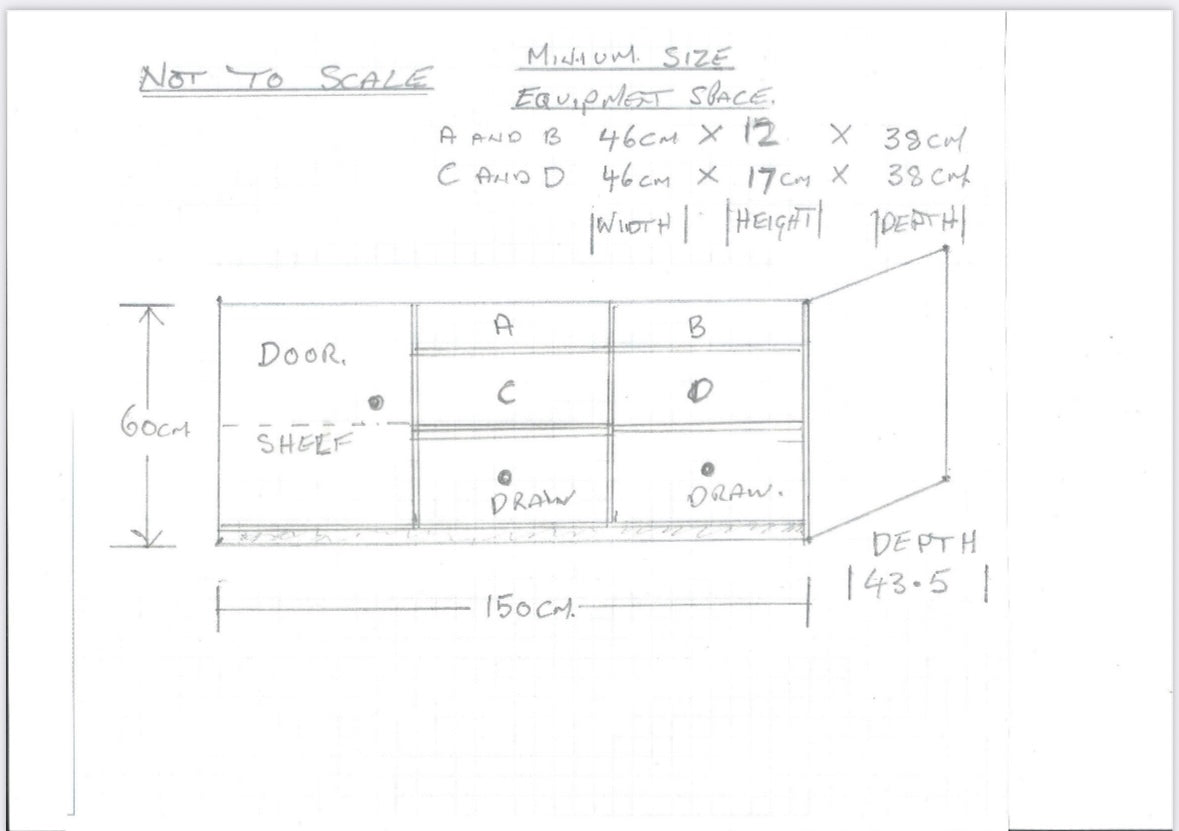 NOT TO SCALE
MINIUM. SIZE
EQUIPMENT SPACE.
A AND B 46CM X 12 X 38CM
C AND D 46CM X 17CM X 38CM
|WIDTH| |HEIGHT| |DEPTH|
A B
DOOR.
C D
60CM
SHELF
DRAW DRAW.
DEPTH
|43.5|
150CM.